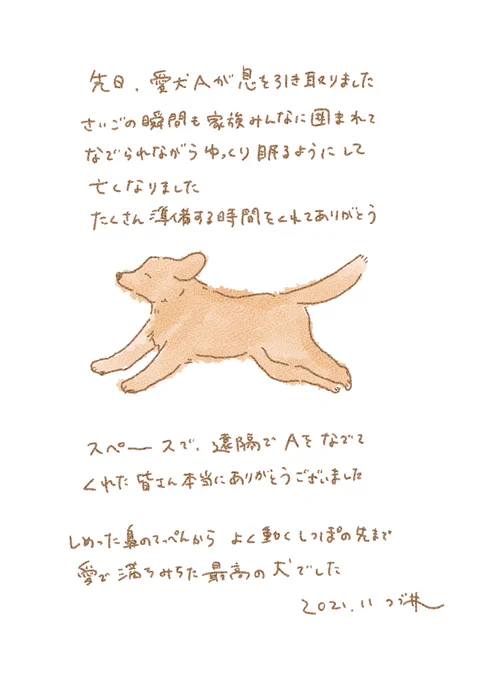 先日、愛犬Aが息を引き取りました
さいごの瞬間も家族みんなに囲まれて
なでられながらゆっくり眠るようにして
亡くなりました
たくさん準備する時間をくれてありがとう
スペースで、遠隔でAをなでて
くれた皆さん本当にありがとうございました
しめった鼻のてっぺんから よく動くしっぽの先まで
愛で満ちみちた最高の犬でした
2021.11 つづ井